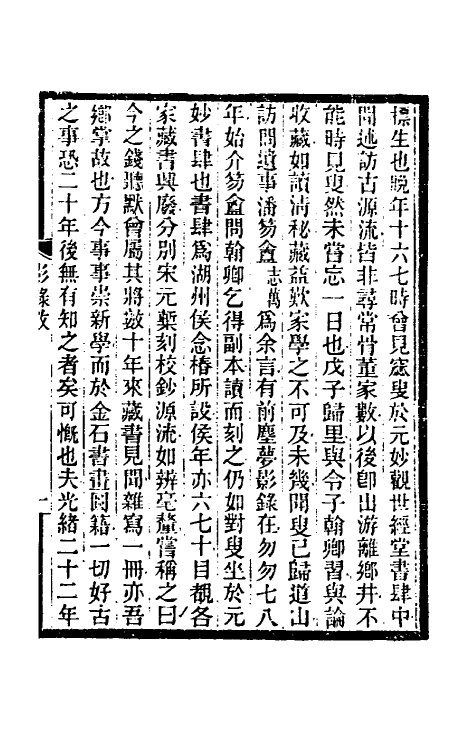 標生也晚年十六七時曾見窓叟於元妙觀世經堂書肆中
間述訪古源流皆非尋常骨董家數以後卽出游離鄉井不
能時見叟然未嘗忘一日也戊子歸里與令子翰卿習與論
收藏如讀淸秘藏益歎家學之不可及未幾聞叟已歸道山
訪問遺事潘笏盦志萬爲余言有前塵夢影錄在匆匆七八
年始介笏盦問翰卿乞得副本讀而刻之仍如對叟坐於元
妙書肆也書肆爲湖州侯念椿所設侯年亦六七十目覩各
家藏書興廢分別宋元槧刻校鈔源流如辨毫釐嘗稱之曰
今之錢聽默曾屬其將數十年來藏書見聞雜寫一冊亦吾
鄉掌故也方今事事崇新學而於金石書畫圖籍一切好古
之事恐二十年後無有知之者矣可慨也夫光緒二十二年
影錄敘
一